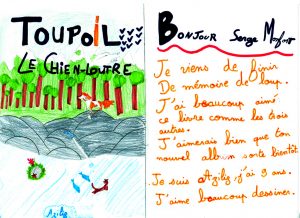 TOUPOIL
LE CHIEN-LOUTRE
Azilyz
BONJOUR Serge Monfort
Je viens de finir
De mémoire de loup.
J'ai beaucoup aimé
ce livre comme les trois
autres.
J'aimerais bien que ton
nouvel album sorte bientôt
Je suis Azilyz, j'ai 9 ans.
J'aime beaucoup dessiner.